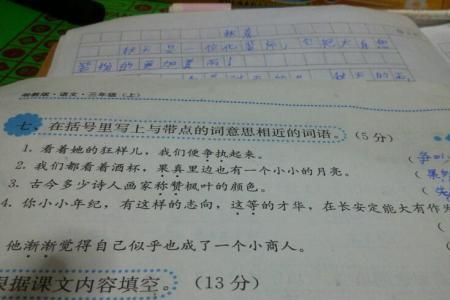 秋天
秋天是一位化
的更加美丽!
湘教版·语文·三年级(上)
七、在括号里写上与带点的词意思相近的词语。(5分)
1. 看着她的狂样儿,我们便争执起来。 (争
2. 我们都看着酒杯,果真里边也有一个小小的月亮。 (果
3. 古今多少诗人画家称赞枫叶的颜色。 (
4. 你小小年纪,有这样的志向,这等的才华,在长安定能大有作
(
他渐渐觉得自己似乎也成了一个小商人。 (
根据课文内容填空。(13分)